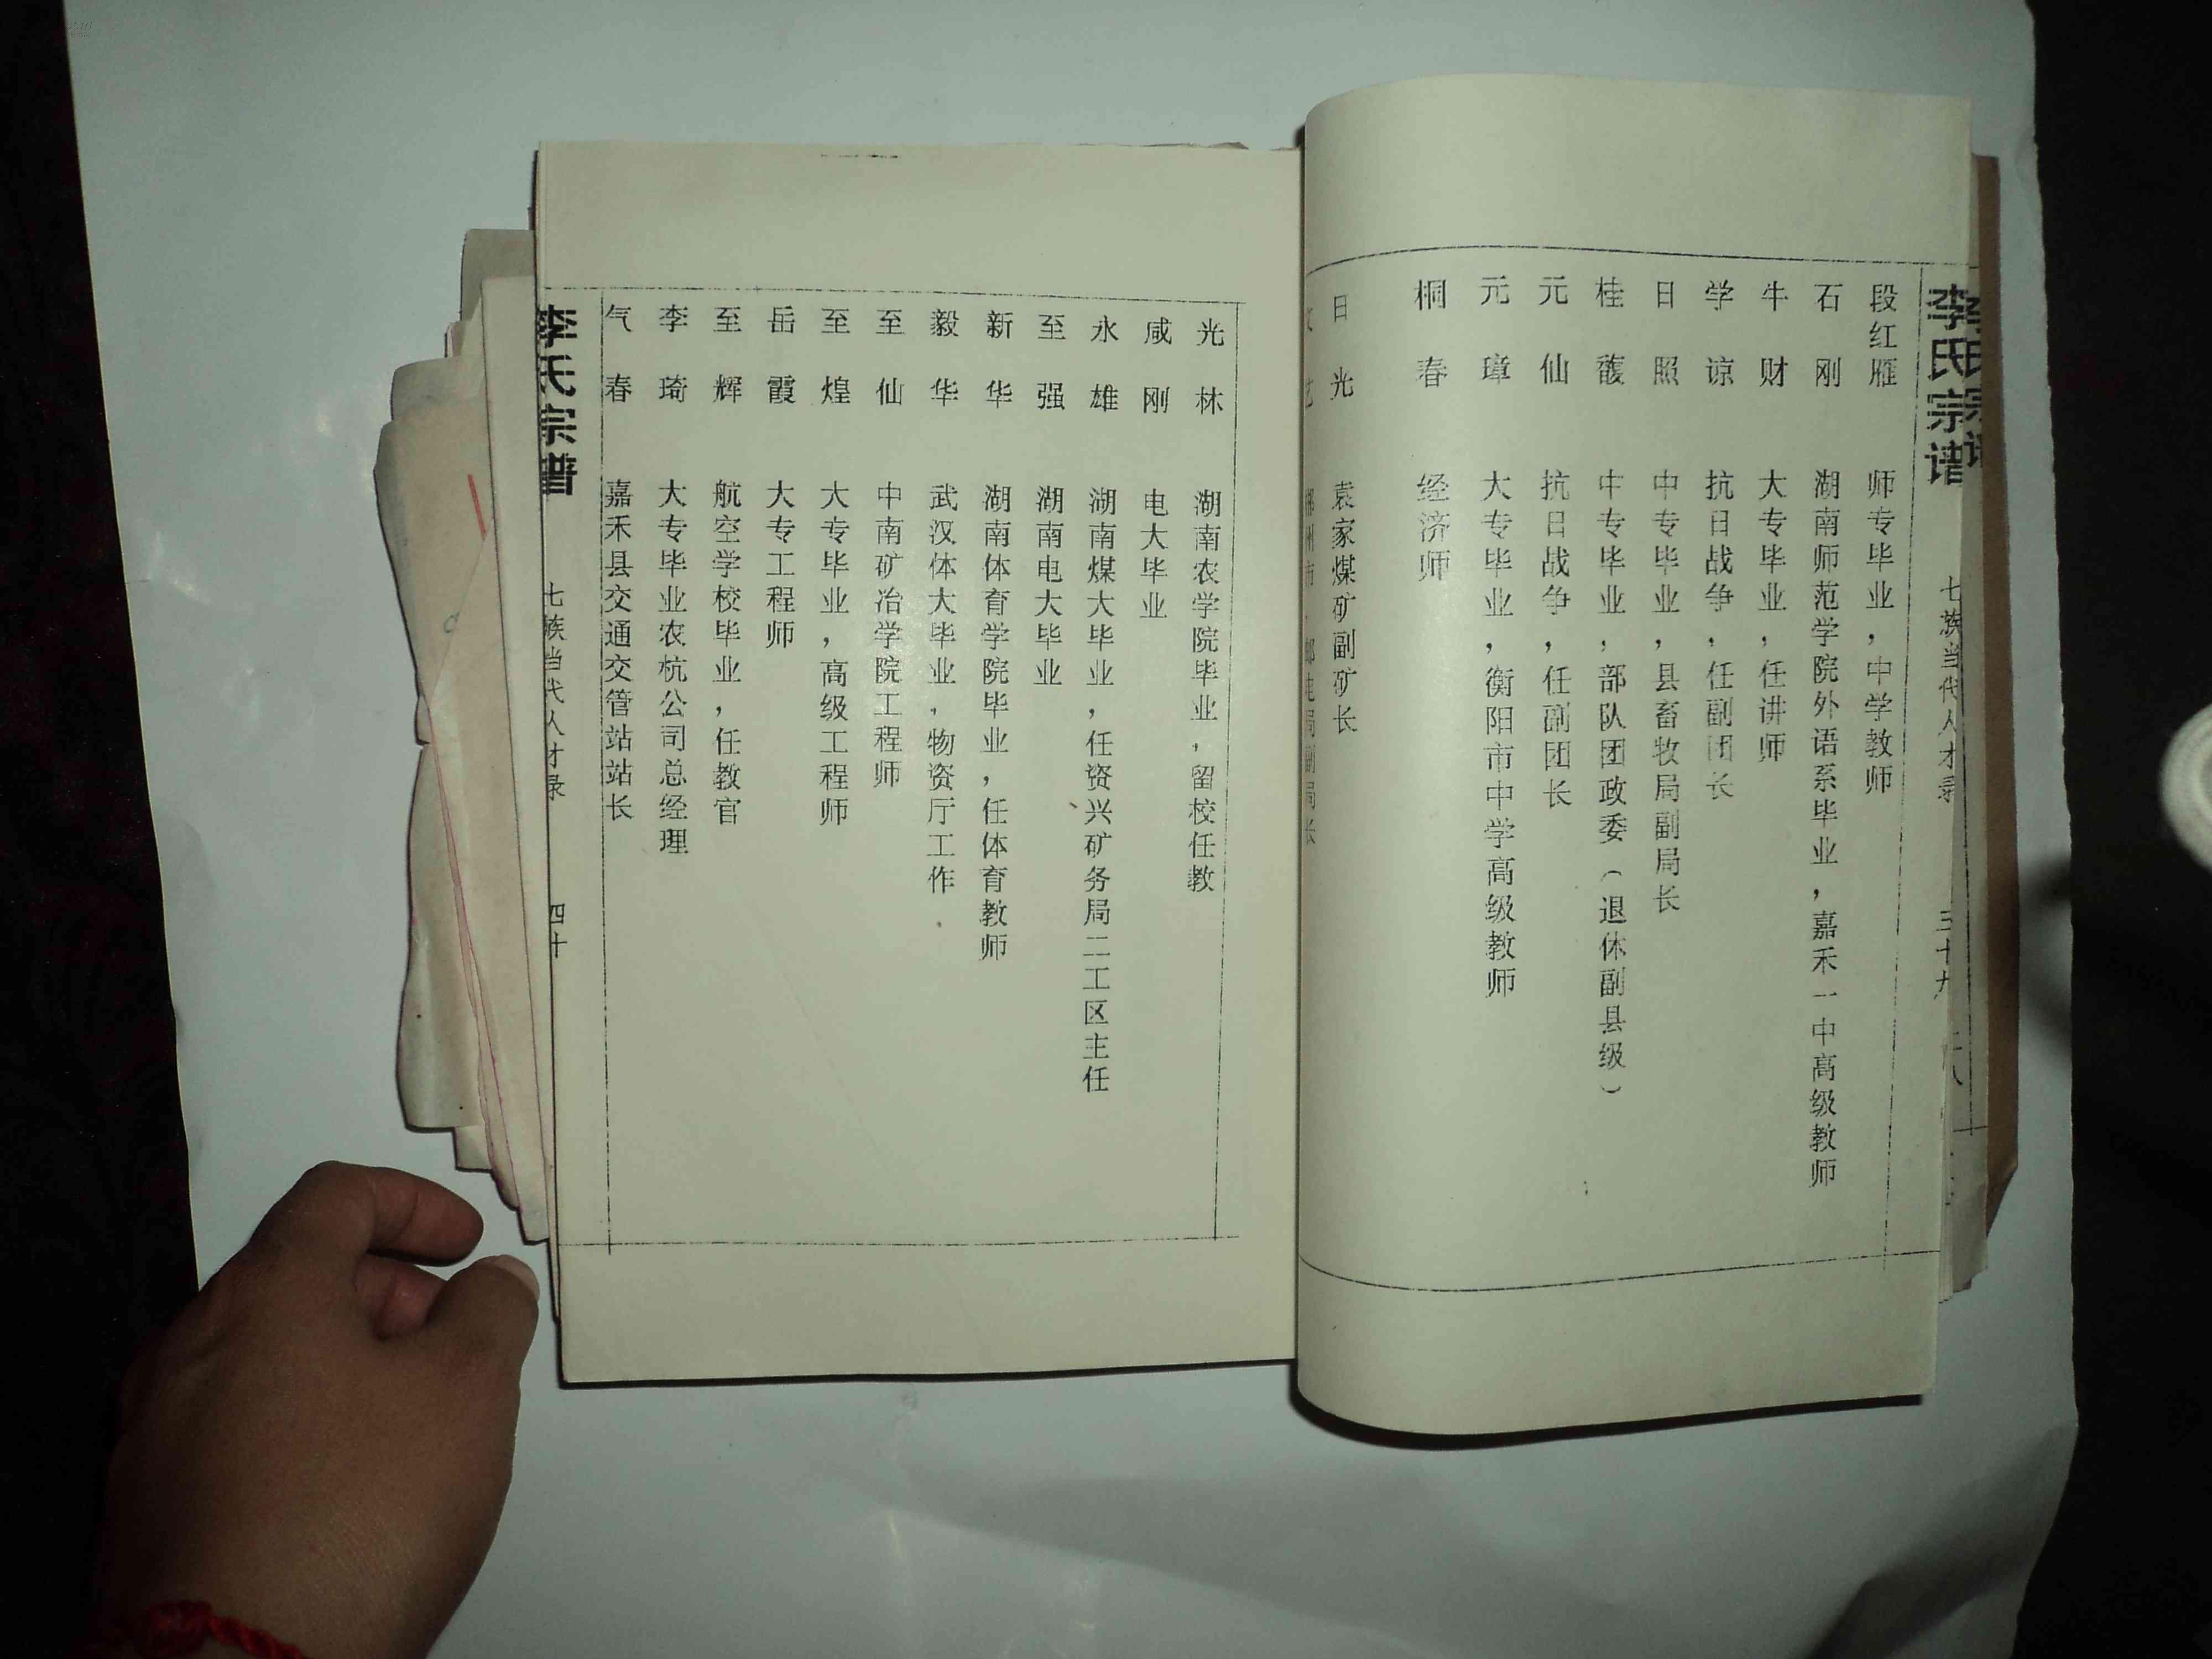 李氏宗谱 七族当代人才录 三十九
段红雁 师专毕业，中学教师
石刚 湖南师范学院外语系毕业，嘉禾一中高级教师
牛财 大专毕业，任讲师
学谅 抗日战争，任副团长
日照 中专毕业，县畜牧局副局长
桂馥 中专毕业，部队团政委（退休副县级）
元仙 抗日战争，任副团长
元璋 大专毕业，衡阳市中学高级教师
桐春 经济师
日光 袁家煤矿副矿长
州市邮电局副局长
光林 湖南农学院毕业，留校任教
咸刚 电大毕业
永雄 湖南煤大毕业，任资兴矿务局二工区主任
至强 湖南电大毕业
新华 湖南体育学院毕业，任体育教师
毅华 武汉体大毕业，物资厅工作
至仙 中南矿冶学院工程师
至煌 大专毕业，高级工程师
岳霞 大专工程师
至辉 航空学校毕业，任教官
李琦 大专毕业农杭公司总经理
气春 嘉禾县交通交管站站长
李氏宗谱 七族当代人才录 四十